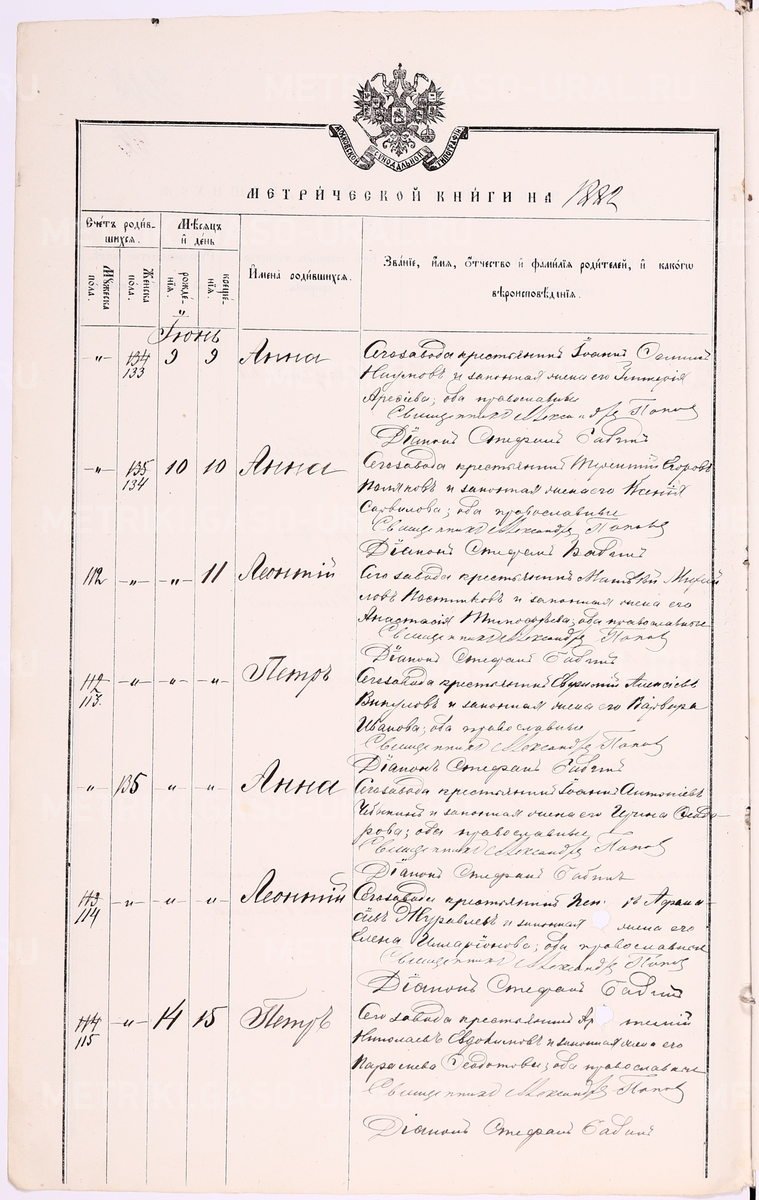 МОСКОВСКОЙ СѴНОДАЛЬНОЙ ТИПОГРАФІИ
МЕТРИЧЕСКОЙ КНИГИ НА 1882
Счетъ родив-
шихся.
Мѣсяцъ
и день
Имена родившихся.
Званіе, имя, отчество и фамилія родителей, и какого
вѣроисповѣданія.
Мужеска
пола.
Женска
пола.
рожде-
нія.
креще-
нія.
Іюнь
" 134 9 9 Анна Сего завода крестьянинъ Іоаннъ
133 Наумовъ и законная жена его
Арефіева; оба православные
Священникъ Александръ Попов
Діаконъ Стефанъ Бабинъ
" 135 10 10 Анна Сего завода крестьянинъ Егоровъ
134 Поляковъ и законная жена его Ксенія
Савилова; оба православные
Священникъ Александръ Попов
Діаконъ Стефанъ Бабинъ
112 " " 11 Леонтій Сего завода крестьянинъ Матвѣй Михай
ловъ и законная жена его
Анастасія Тимофѣева; оба православные
Священникъ Александръ Попов
Діаконъ Стефанъ Бабинъ
112 " " " Петръ Сего завода крестьянинъ Евдокимъ Алексѣевъ
113. Викуловъ и законная жена его Варвара
Иванова; оба православные
Священникъ Александръ Попов
Діаконъ Стефанъ Бабинъ
" 135 " " Анна Сего завода крестьянинъ Іоаннъ Антоніевъ
и законная жена его Ирина Ѳеодо-
рова; оба православные
Священникъ Александръ Попов
Діаконъ Стефанъ Бабинъ
113 " " " Леонтій Сего завода крестьянинъ Афана
114 сіевъ Журавлевъ и законная жена его
Елена Иларіонова; оба православные
Священникъ Александръ Попов
Діаконъ Стефанъ Бабинъ
114 " 14 15 Петръ Сего завода крестьянинъ Артемій
115 Николаевъ Евдокимовъ и законная жена его
Параскева Ѳеодотовы; оба православные
Священникъ Александръ Попов
Діаконъ Стефанъ Бабинъ